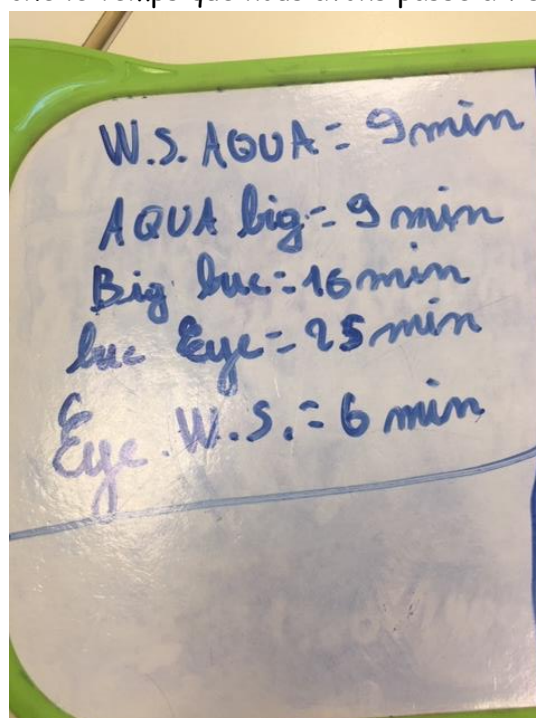 W.S. AQUA = 9 min
AQUA big = 9 min
Big buc = 16 min
buc Eye = 25 min
Eye W.S. = 6 min